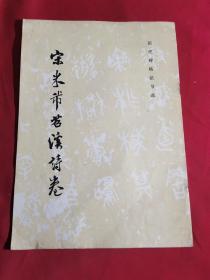 历代碑帖法书选
宋米芾苕溪诗卷